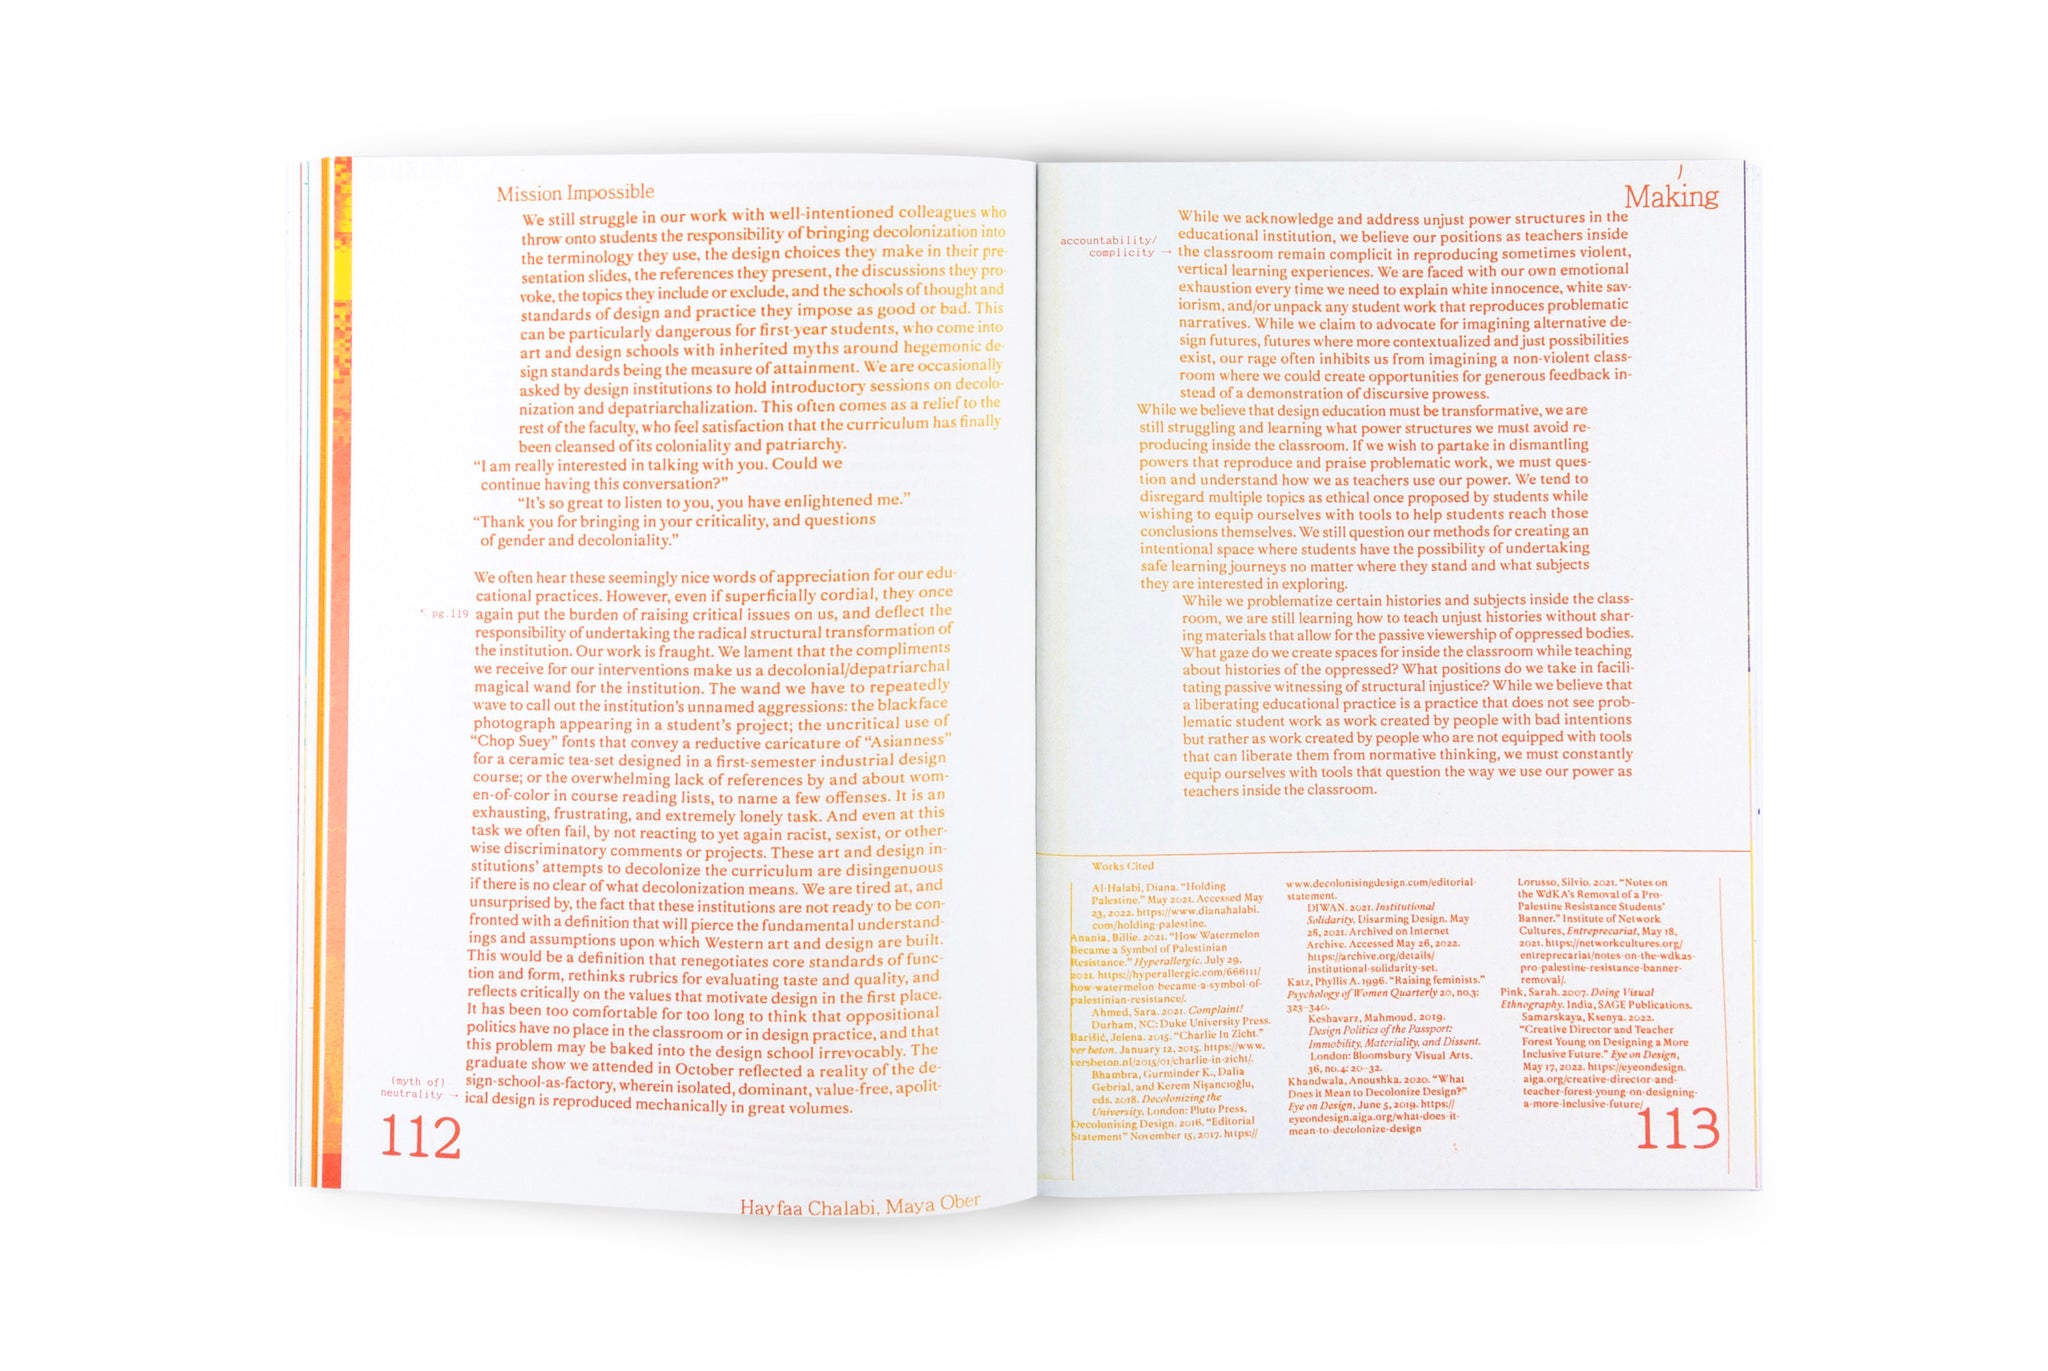 Mission Impossible
We still struggle in our work with well-intentioned colleagues who
throw onto students the responsibility of bringing decolonization into
the terminology they use, the design choices they make in their pre-
sentation slides, the references they present, the discussions they pro-
voke, the topics they include or exclude, and the schools of thought and
standards of design and practice they impose as good or bad. This
can be particularly dangerous for first-year students, who come into
art and design schools with inherited myths around hegemonic de-
sign standards being the measure of attainment. We are occasionally
asked by design institutions to hold introductory sessions on decolo-
nization and depatriarchalization. This often comes as a relief to the
rest of the faculty, who feel satisfaction that the curriculum has finally
been cleansed of its coloniality and patriarchy.
“I am really interested in talking with you. Could we
continue having this conversation?”
“It’s so great to listen to you, you have enlightened me.”
“Thank you for bringing in your criticality, and questions
of gender and decoloniality.”
We often hear these seemingly nice words of appreciation for our edu-
cational practices. However, even if superficially cordial, they once
pg.119
again put the burden of raising critical issues on us, and deflect the
responsibility of undertaking the radical structural transformation of
the institution. Our work is fraught. We lament that the compliments
we receive for our interventions make us a decolonial/depatriarchal
magical wand for the institution. The wand we have to repeatedly
wave to call out the institution’s unnamed aggressions: the blackface
photograph appearing in a student’s project; the uncritical use of
“Chop Suey” fonts that convey a reductive caricature of “Asianness”
for a ceramic tea-set designed in a first-semester industrial design
course; or the overwhelming lack of references by and about wom-
en-of-color in course reading lists, to name a few offenses. It is an
exhausting, frustrating, and extremely lonely task. And even at this
task we often fail, by not reacting to yet again racist, sexist, or other-
wise discriminatory comments or projects. These art and design in-
stitutions’ attempts to decolonize the curriculum are disingenuous
if there is no clear of what decolonization means. We are tired at, and
unsurprised by, the fact that these institutions are not ready to be con-
fronted with a definition that will pierce the fundamental understand-
ings and assumptions upon which Western art and design are built.
This would be a definition that renegotiates core standards of func-
tion and form, rethinks rubrics for evaluating taste and quality, and
reflects critically on the values that motivate design in the first place.
It has been too comfortable for too long to think that oppositional
politics have no place in the classroom or in design practice, and that
this problem may be baked into the design school irrevocably. The
graduate show we attended in October reflected a reality of the de-
sign-school-as-factory, wherein isolated, dominant, value-free, apolit-
ical design is reproduced mechanically in great volumes.
(myth of)
neutrality →
112
Hayfaa Chalabi, Maya Ober
Making
While we acknowledge and address unjust power structures in the
educational institution, we believe our positions as teachers inside
the classroom remain complicit in reproducing sometimes violent,
vertical learning experiences. We are faced with our own emotional
exhaustion every time we need to explain white innocence, white sav-
iorism, and/or unpack any student work that reproduces problematic
narratives. While we claim to advocate for imagining alternative de-
sign futures, futures where more contextualized and just possibilities
exist, our rage often inhibits us from imagining a non-violent class-
room where we could create opportunities for generous feedback in-
stead of a demonstration of discursive prowess.
accountability/
complicity →
While we believe that design education must be transformative, we are
still struggling and learning what power structures we must avoid re-
producing inside the classroom. If we wish to partake in dismantling
powers that reproduce and praise problematic work, we must ques-
tion and understand how we as teachers use our power. We tend to
disregard multiple topics as ethical once proposed by students while
wishing to equip ourselves with tools to help students reach those
conclusions themselves. We still question our methods for creating an
intentional space where students have the possibility of undertaking
safe learning journeys no matter where they stand and what subjects
they are interested in exploring.
While we problematize certain histories and subjects inside the class-
room, we are still learning how to teach unjust histories without shar-
ing materials that allow for the passive viewership of oppressed bodies.
What gaze do we create spaces for inside the classroom while teaching
about histories of the oppressed? What positions do we take in facili-
tating passive witnessing of structural injustice? While we believe that
a liberating educational practice is a practice that does not see prob-
lematic student work as work created by people with bad intentions
but rather as work created by people who are not equipped with tools
that can liberate them from normative thinking, we must constantly
equip ourselves with tools that question the way we use our power as
teachers inside the classroom.
Works Cited
Al-Halabi, Diana. “Holding
Palestine.” May 2021. Accessed May
23, 2022. https://www.dianahalabi.
com/holding-palestine.
Anania, Billie. 2021. “How Watermelon
Became a Symbol of Palestinian
Resistance.” Hyperallergic. July 29,
2021. https://hyperallergic.com/666111/
how-watermelon-became-a-symbol-of-
palestinian-resistance/.
Ahmed, Sara. 2021. Complaint!
Durham, NC: Duke University Press.
Barišić, Jelena. 2015. “Charlie In Zicht.”
ver beton. January 12, 2015. https://www.
versbeton.nl/2015/01/charlie-in-zicht/.
Bhambra, Gurminder K., Dalia
Gebrial, and Kerem Nişancıoğlu,
eds. 2018. Decolonizing the
University. London: Pluto Press.
Decolonising Design. 2016. “Editorial
Statement” November 15, 2017. https://
www.decolonisingdesign.com/editorial-
statement.
DIWAN. 2021. Institutional
Solidarity. Disarming Design. May
28, 2021. Archived on Internet
Archive. Accessed May 26, 2022.
https://archive.org/details/
institutional-solidarity-set.
Katz, Phyllis A. 1996. “Raising feminists.”
Psychology of Women Quarterly 20, no.3:
323–340.
Keshavarz, Mahmoud. 2019.
Design Politics of the Passport:
Immobility, Materiality, and Dissent.
London: Bloomsbury Visual Arts.
36, no.4: 20–32.
Khandwala, Anoushka. 2020. “What
Does it Mean to Decolonize Design?”
Eye on Design, June 5, 2019. https://
eyeondesign.aiga.org/what-does-it-
mean-to-decolonize-design
Lorusso, Silvio. 2021. “Notes on
the WdKA’s Removal of a Pro-
Palestine Resistance Students’
Banner.” Institute of Network
Cultures, Entreprecariat, May 18,
2021. https://networkcultures.org/
entreprecariat/notes-on-the-wdkas-
pro-palestine-resistance-banner-
removal/.
Pink, Sarah. 2007. Doing Visual
Ethnography. India, SAGE Publications.
Samarskaya, Ksenya. 2022.
“Creative Director and Teacher
Forest Young on Designing a More
Inclusive Future.” Eye on Design,
May 17, 2022. https://eyeondesign.
aiga.org/creative-director-and-
teacher-forest-young-on-designing-
a-more-inclusive-future/
113